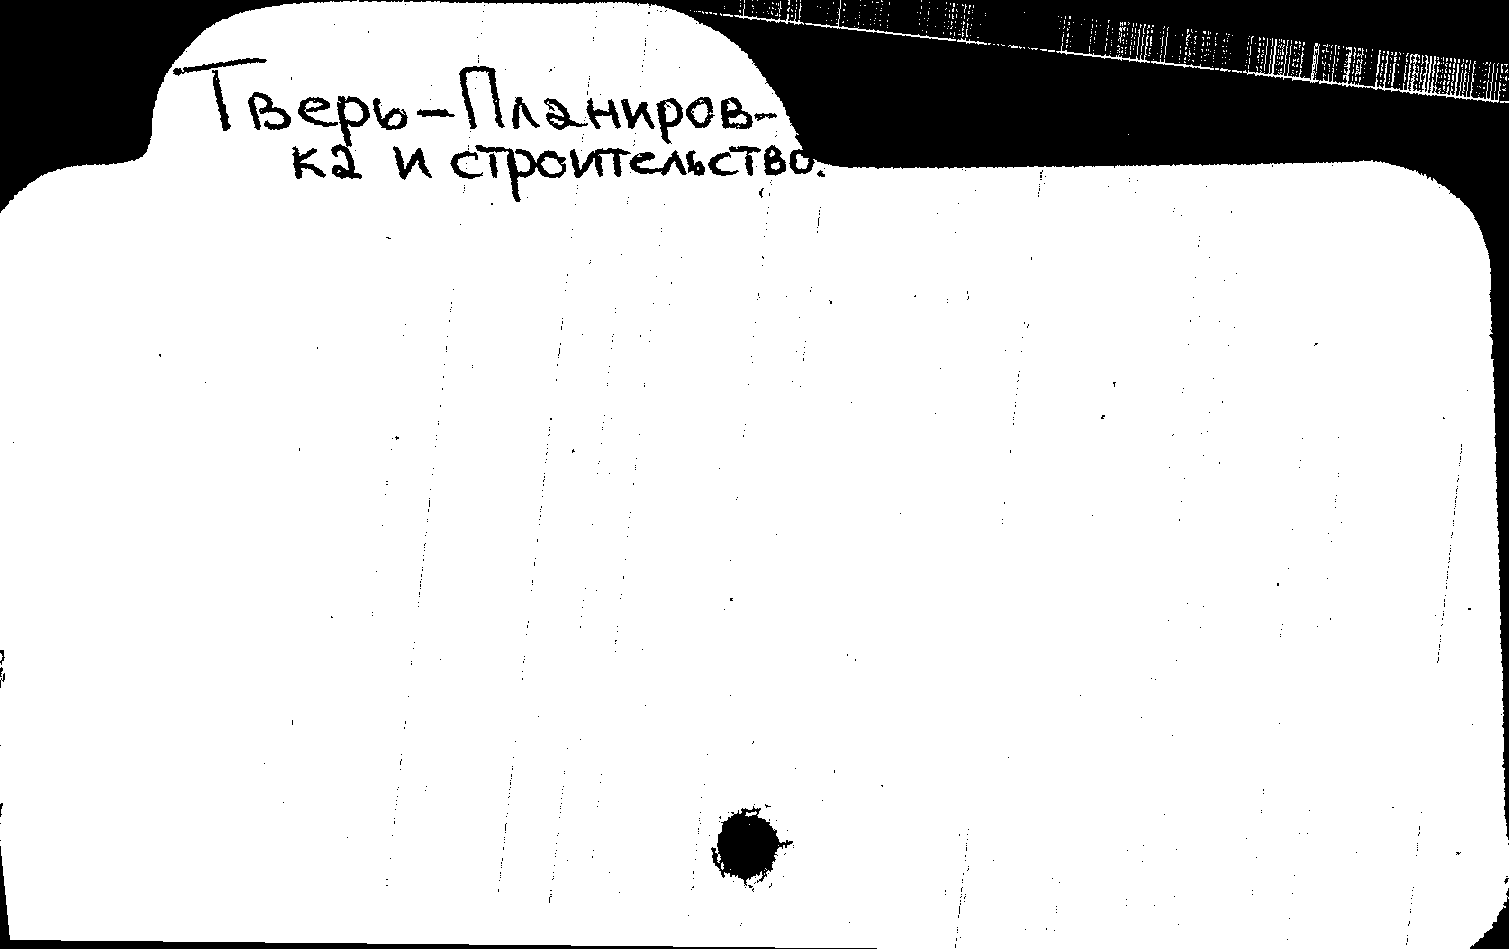 Тверь-Планиров-
ка и строительство.